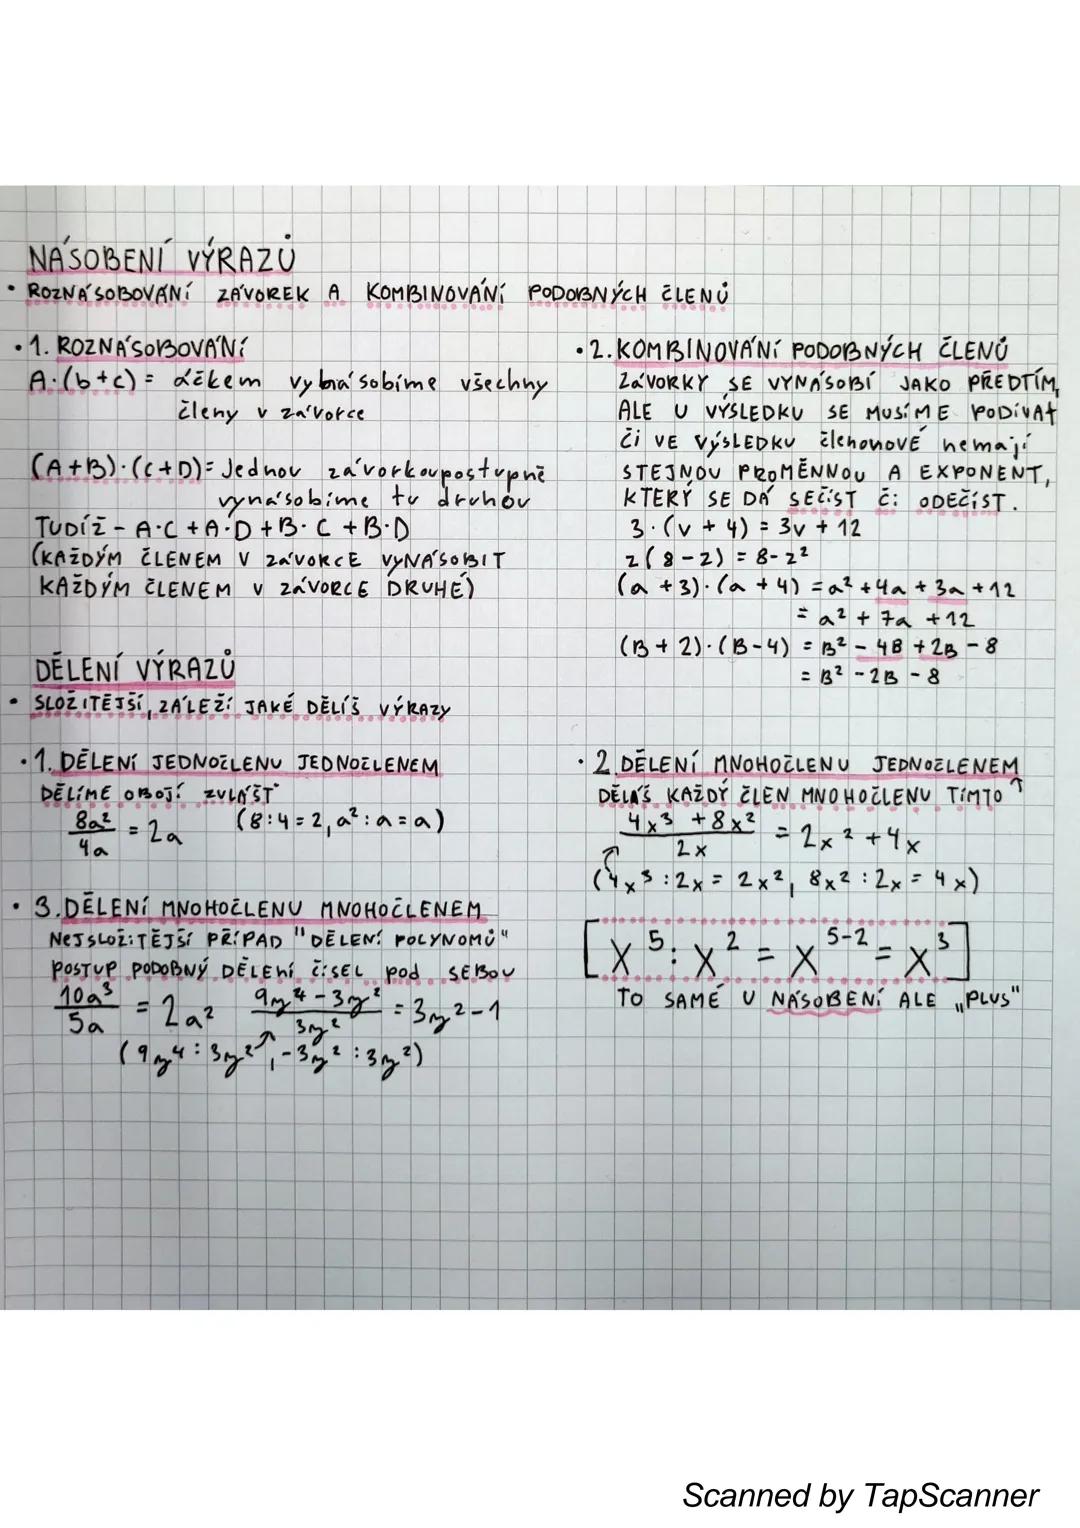 NÁSOBENÍ VÝRAZŮ
• ROZNÁSOBOVÁNÍ ZÁVOREK A KOMBINOVÁNÍ PODOBNÝCH ČLENŮ
• 1. ROZNÁSOBOVÁNÍ
A·(b+c) = áčkem vynásobíme všechny
členy v závorce
(A+B)·(C+D) = Jednou závorkou postupně
vynásobíme tu druhou
TUDÍŽ - A·C + A·D + B·C + B·D
(KAŽDÝM ČLENEM V ZÁVORCE VYNÁSOBIT
KAŽDÝM ČLENEM V ZÁVORCE DRUHÉ)
• 2. KOMBINOVÁNÍ PODOBNÝCH ČLENŮ
ZÁVORKY SE VYNÁSOBÍ JAKO PŘEDTÍM,
ALE U VÝSLEDKU SE MUSÍME PODÍVAT
ČI VE VÝSLEDKU členonové nemají
STEJNOU PROMĚNNOU A EXPONENT,
KTERÝ SE DÁ SEČÍST ČI ODEČÍST.
3·(v + 4) = 3v + 12
z(8-z) = 8-z²
(a + 3)·(a + 4) = a² + 4a + 3a + 12
= a² + 7a + 12
(B + 2)·(B - 4) = B² - 4B + 2B - 8
= B² - 2B - 8
DĚLENÍ VÝRAZŮ
• SLOŽITĚJŠÍ, ZÁLEŽÍ JAKÉ DĚLÍŠ VÝRAZY
• 1. DĚLENÍ JEDNOČLENU JEDNOČLENEM
DĚLÍME OBOJÍ ZVLÁŠŤ
8a²/4a = 2a (8:4 = 2, a²:a = a)
• 2. DĚLENÍ MNOHOČLENU JEDNOČLENEM
DĚLÁŠ KAŽDÝ ČLEN MNOHOČLENU TÍMTO ↑
4x³ + 8x²/2x = 2x² + 4x
(4x³ : 2x = 2x², 8x² : 2x = 4x)
• 3. DĚLENÍ MNOHOČLENU MNOHOČLENEM
NEJSLOŽITĚJŠÍ PŘÍPAD "DĚLENÍ POLYNOMŮ"
POSTUP PODOBNÝ DĚLENÍ ČÍSEL pod SEBOU
10a³/5a = 2a² 9y⁴ - 3y²/3y² = 3y² - 1
(9y⁴ : 3y², -3y² : 3y²)
[x⁵ : x² = x⁵⁻² = x³]
TO SAMÉ U NÁSOBENÍ ALE „PLUS"
Scanned by TapScanner